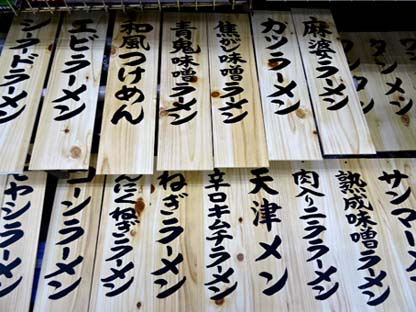 シーフードラーメン
エビラーメン
和風つけめん
青鬼味噌ラーメン
焦がし味噌ラーメン
カツラーメン
麻婆ラーメン
タンメン
モヤシラーメン
コーンラーメン
にんにくねぎラーメン
ねぎラーメン
辛口キムチラーメン
天津メン
肉入りニララーメン
熟成味噌ラーメン
サンマーメン